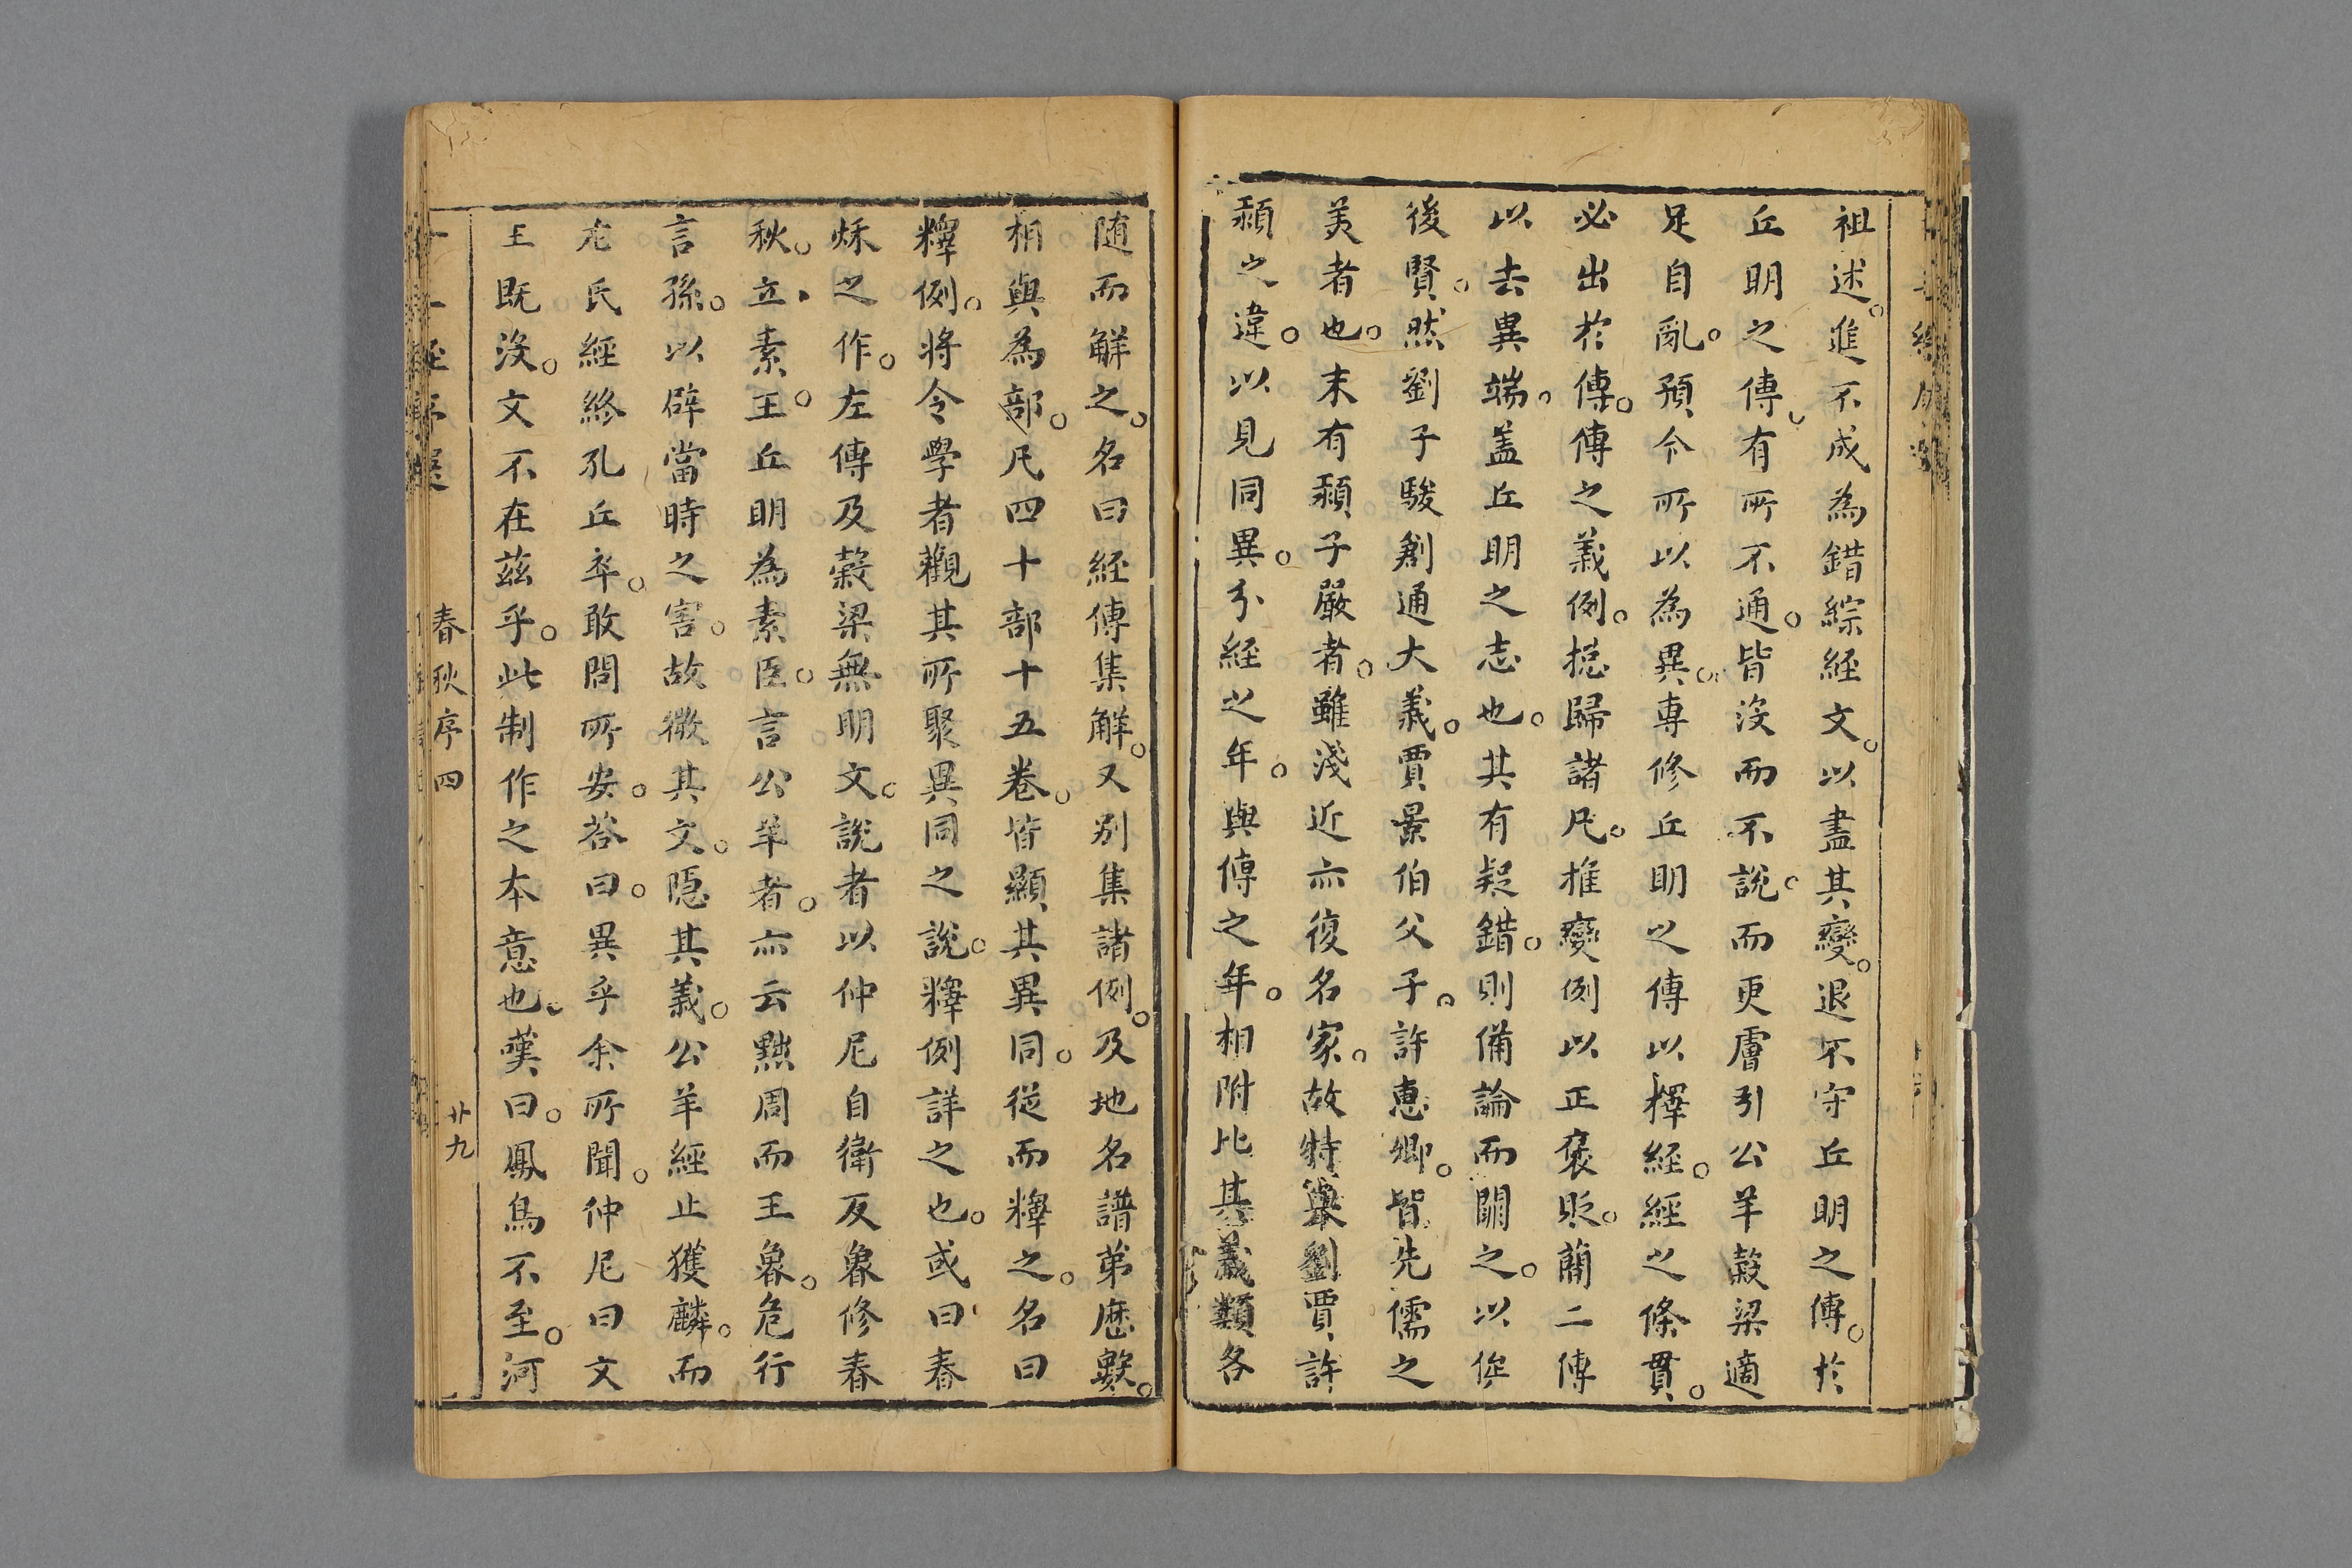 祖述。進不成為錯綜経文。以盡其變。退不守丘明之傳。於
丘明之傳。有所不通。皆没而不說。而更膚引公羊穀梁適
足自亂。預今所以為異。専修丘明之傳以釋経。經之條貫。
必出於傳。傳之義例。揔歸諸凡。推變例以正褒貶。蕳二傳
以去異端。盖丘明之志也。其有疑錯。則俻論而闕之。以俟
後賢。然劉子駿創通大義。賈景伯父子。許惠卿。皆先儒之
美者也。末有頴子嚴者。雖淺近亦復名家。故特舉劉賈許
頴之違。以見同異。分経之年。與傳之年。相附比其義類各
随而解之。名曰経傳集解。又别集諸例。及地名譜弟歷數。
相與為部。凡四十部十五卷。皆顯其異同。從而釋之。名曰
釋例。将令學者觀其所聚異同之說。釋例詳之也。或曰春
秌之作。左傳及穀梁無明文。說者以仲尼自衛反魯修春
秋。立素王。丘明為素臣。言公羊者。亦云黜周而王魯。危行
言孫。以辟當時之害。故微其文。隐其義。公羊經止獲麟。而
左氏經終孔丘卒。敢問所安。荅曰。異乎余所聞。仲尼曰文
王既没。文不在茲乎。此制作之本意也。嘆曰。鳳鳥不至。河
春秋序四
廿九